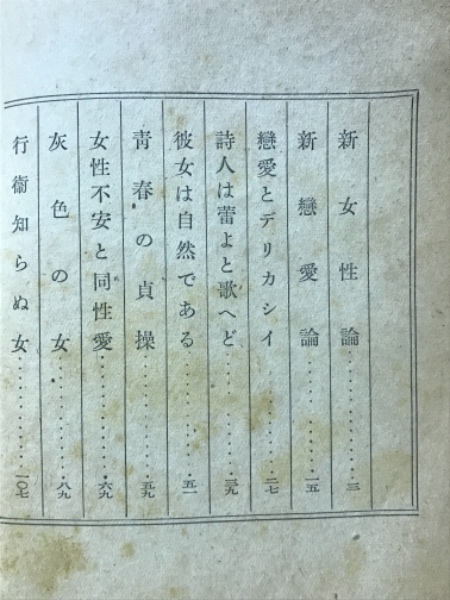 新女性論……………三
新戀愛論……………一五
戀愛とデリカシイ……………二七
詩人は蕾よと歌へど……………三九
彼女は自然である……………五一
靑春の貞操……………五九
女性不安と同性愛……………六九
灰色の女……………八九
行衞知らぬ女……………一〇七